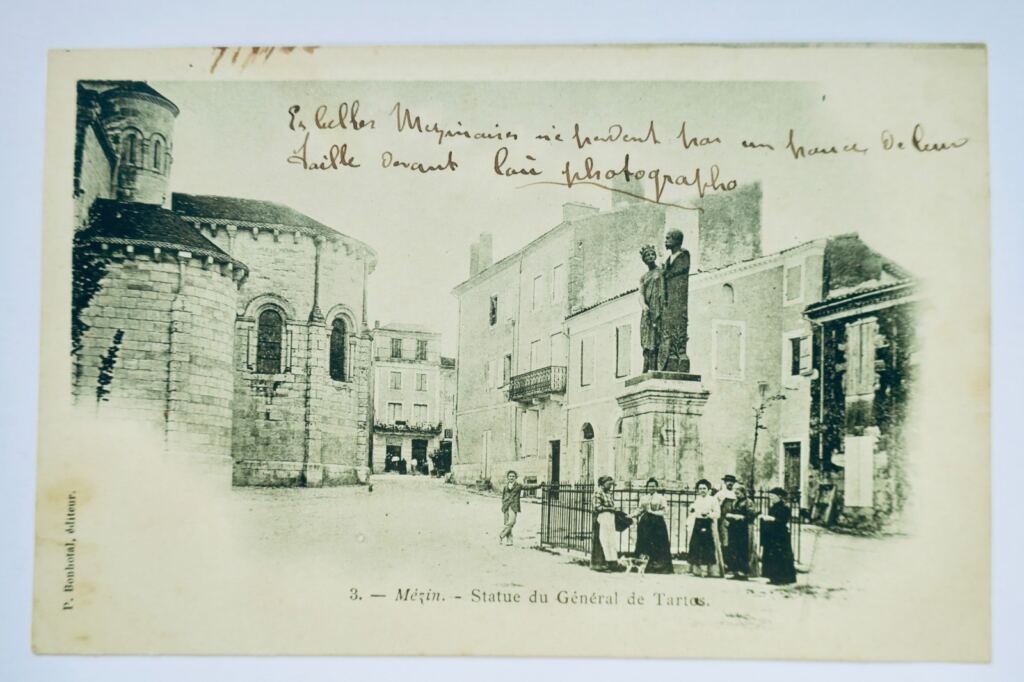 Es belles Mezinaises ne perdent pas un pouce de leur
taille devant photographo
3. — Mézin. - Statue du Général de Tartas.
P. Bonhotal, éditeur.